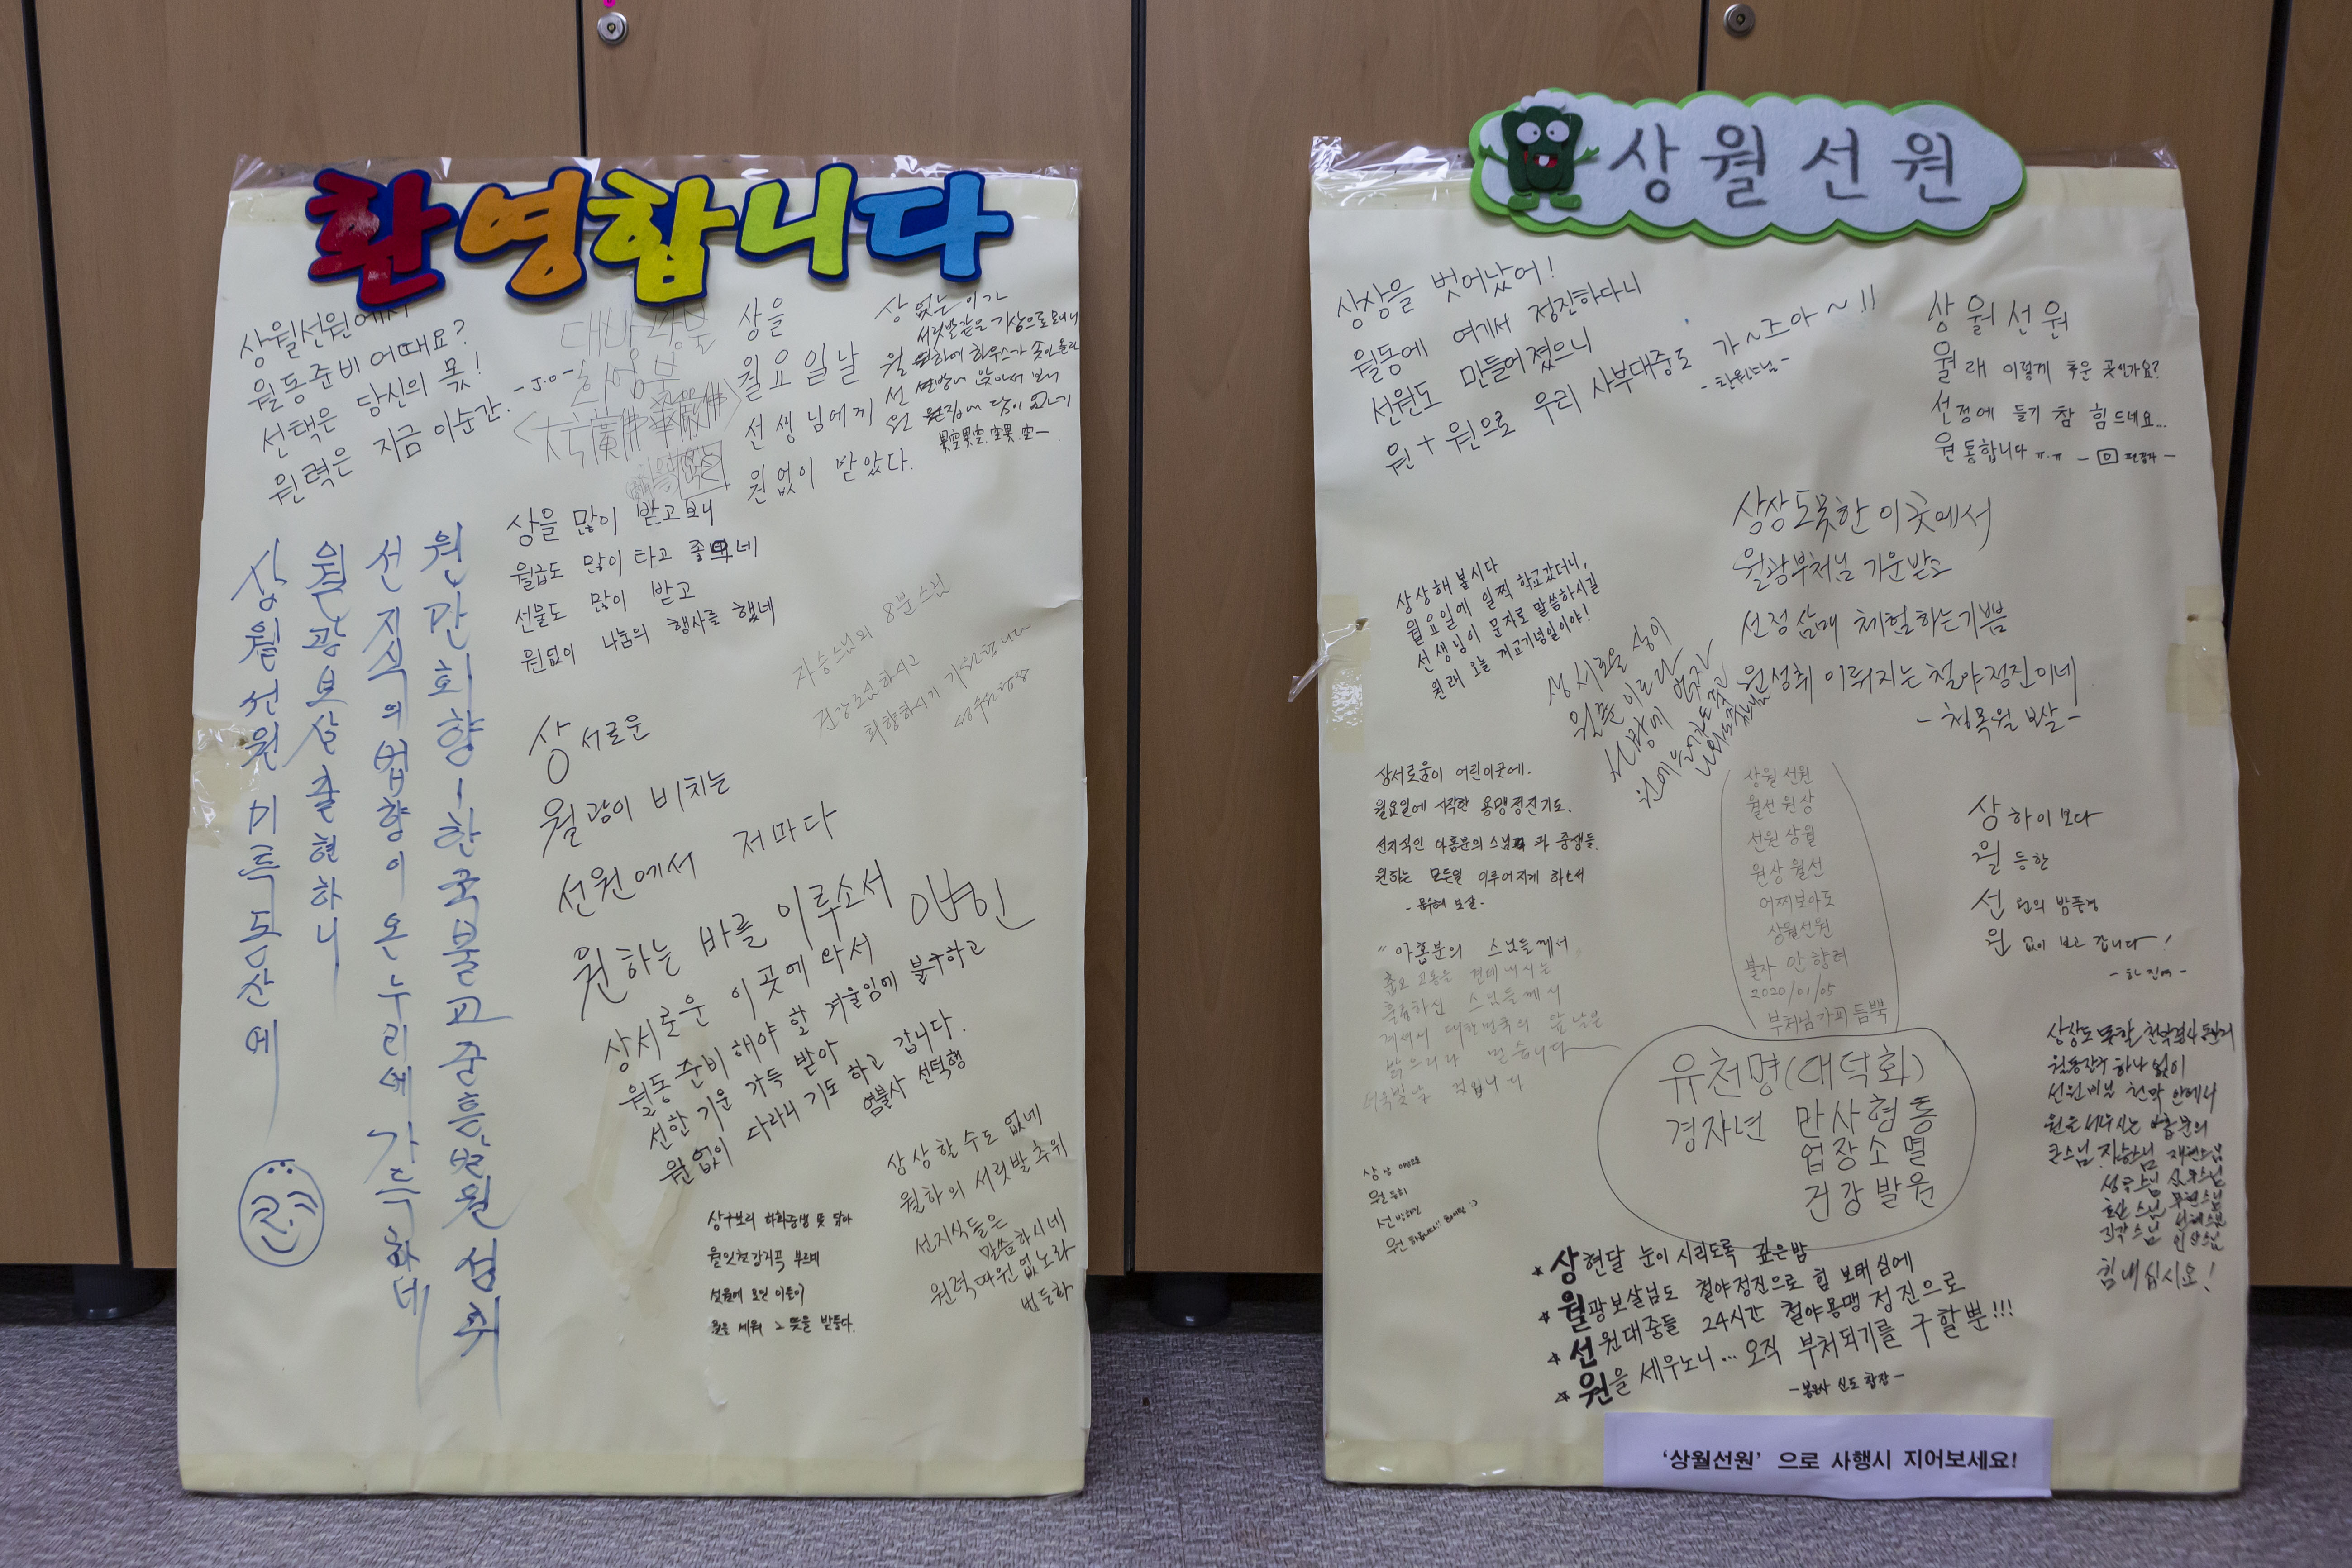 환영합니다
상월선원에서
월동준비 어때요?
선택은 당신의 몫!
원력은 지금 이순간.
-J.O-
상을
월요일날
선생님에게
원없이 받았다.
상 없는 이가
서릿발같은 기상으로 모이니
월 월하에 하우스가
선 선방에 앉아서 보니
원
상을 많이 받고보니
월급도 많이 타고 좋네
선물도 많이 받고
원없이 나눔의 행사를 했네
자승스님외 8분스님
건강조심하시고
회향하시기 기원합니다
상월선원 미륵도량에
월광보살출현하니
선지식의 법향이 온누리에 가득하네
원만회향-한국불교중흥발원성취
상서로운
월광이 비치는
선원에서 저마다
원하는 바를 이루소서
상서로운 이곳에 와서
월동준비 해야 할 겨울임에 불구하고
선한 기운 가득 받아
원없이 다라니 기도 하고 갑니다.
염불사 선덕행
상상할 수도 없네
월하의 서릿발 추위
선지식들은
말씀하시네
원력따윈 없노라
법등화
상구보리 하화중생 뜻 담아
월인천강지곡 부르네
선원에 모인 이들이
원을 세워 그 뜻을 받들다.
상월선원
상상을 벗어났어!
월동에 여기서 정진하다니
선원도 만들어졌으니
원+원으로 우리 사부대중도 가~즈아~!!
상월선원
월래 이렇게 추운 곳인가요?
선정에 들기 참 힘드네요...
원통합니다 ㅠ.ㅠ
상상도못한 이곳에서
월광부처님 기운받고
선정삼매 체험하는기쁨
원성취 이뤄지는 철야정진이네
-청목월 보살-
상상해 봅시다
월요일에 일찍 학교갔더니,
선생님이 문자로 말씀하시길
원래 오늘 개교기념일이야!
상서로움이 어린이곳에.
월요일에 시작한 용맹정진기도.
선지식인 아홉분의 스님과 중생들.
원하는 모든일 이루어지게 하소서
"아홉분의 스님들께서"
춥고 고통을 견뎌내시는
훌륭하신 스님들께서
계셔서 대한민국의 앞날은
밝으리라 믿습니다
상월선원
월선원상
선원상월
원상월선
어찌보아도
상월선원
불자 안향려
2020/01/05
부처님가피듬뿍
유천명(대덕화)
경자년 만사형통
업장소멸
건강발원
상하이보다
월등한
선원의 밤풍경
원없이 보고 갑니다!
상상도 못할 천막결사 동안거
월동장구 하나 없이
선원이름 천막 안에서
원을 세우시는 아홉분의
힘내십시오!
*상현달 눈이 시리도록 깊은밤
*월광보살님도 철야정진으로 힘 보태심에
*선원대중들 24시간 철야용맹정진으로
*원을 세우노니... 오직 부처되기를 구할뿐!!!
-봉은사 신도 합장-
'상월선원' 으로 사행시 지어보세요!